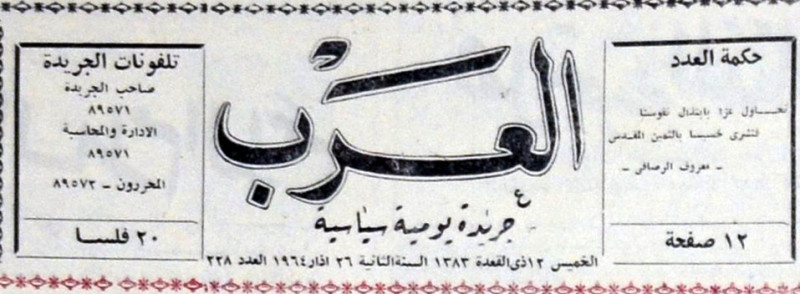 حكمة العدد
تحاول عزا بابتذال نفوسنا
فتشرى خسيسا بالثمين المقدس
- معروف الرصافي -
١٢ صفحة
العرب
جريدة يومية سياسية
الخميس ١٢ ذي القعدة ١٣٨٣ السنة الثانية ٢٦ اذار ١٩٦٤ العدد ٢٢٨
تلفونات الجريدة
صاحب الجريدة
٨٩٥٧١
الادارة والمحاسبة
٨٩٥٧١
المحررون - ٨٩٥٧٢
٢٠ فلسا